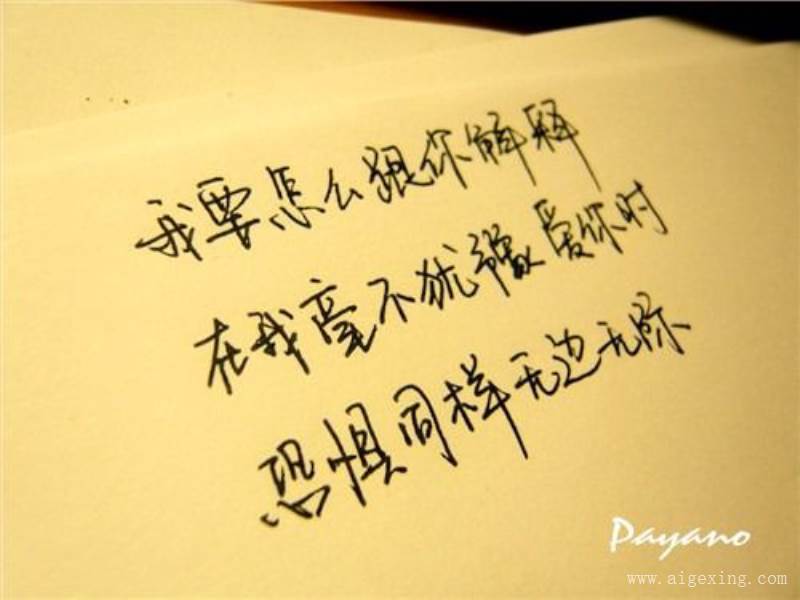 我要怎么跟你解释
在我毫不犹豫爱你时
恐惧同样无边无际
Payano
www.aigexing.com